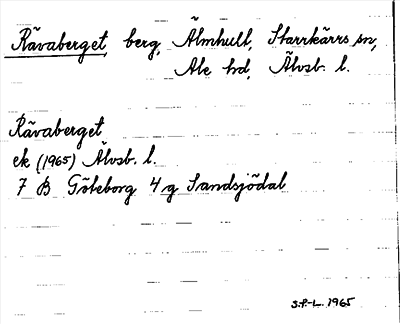 Rävaberget, berg, Älmhult, Starrkärrs sn,
Ale hd, Älvsb. l.
Rävaberget
ek (1965) Älvsb. l.
7 B Göteborg 4 g Sandsjödal
S.P-L. 1965